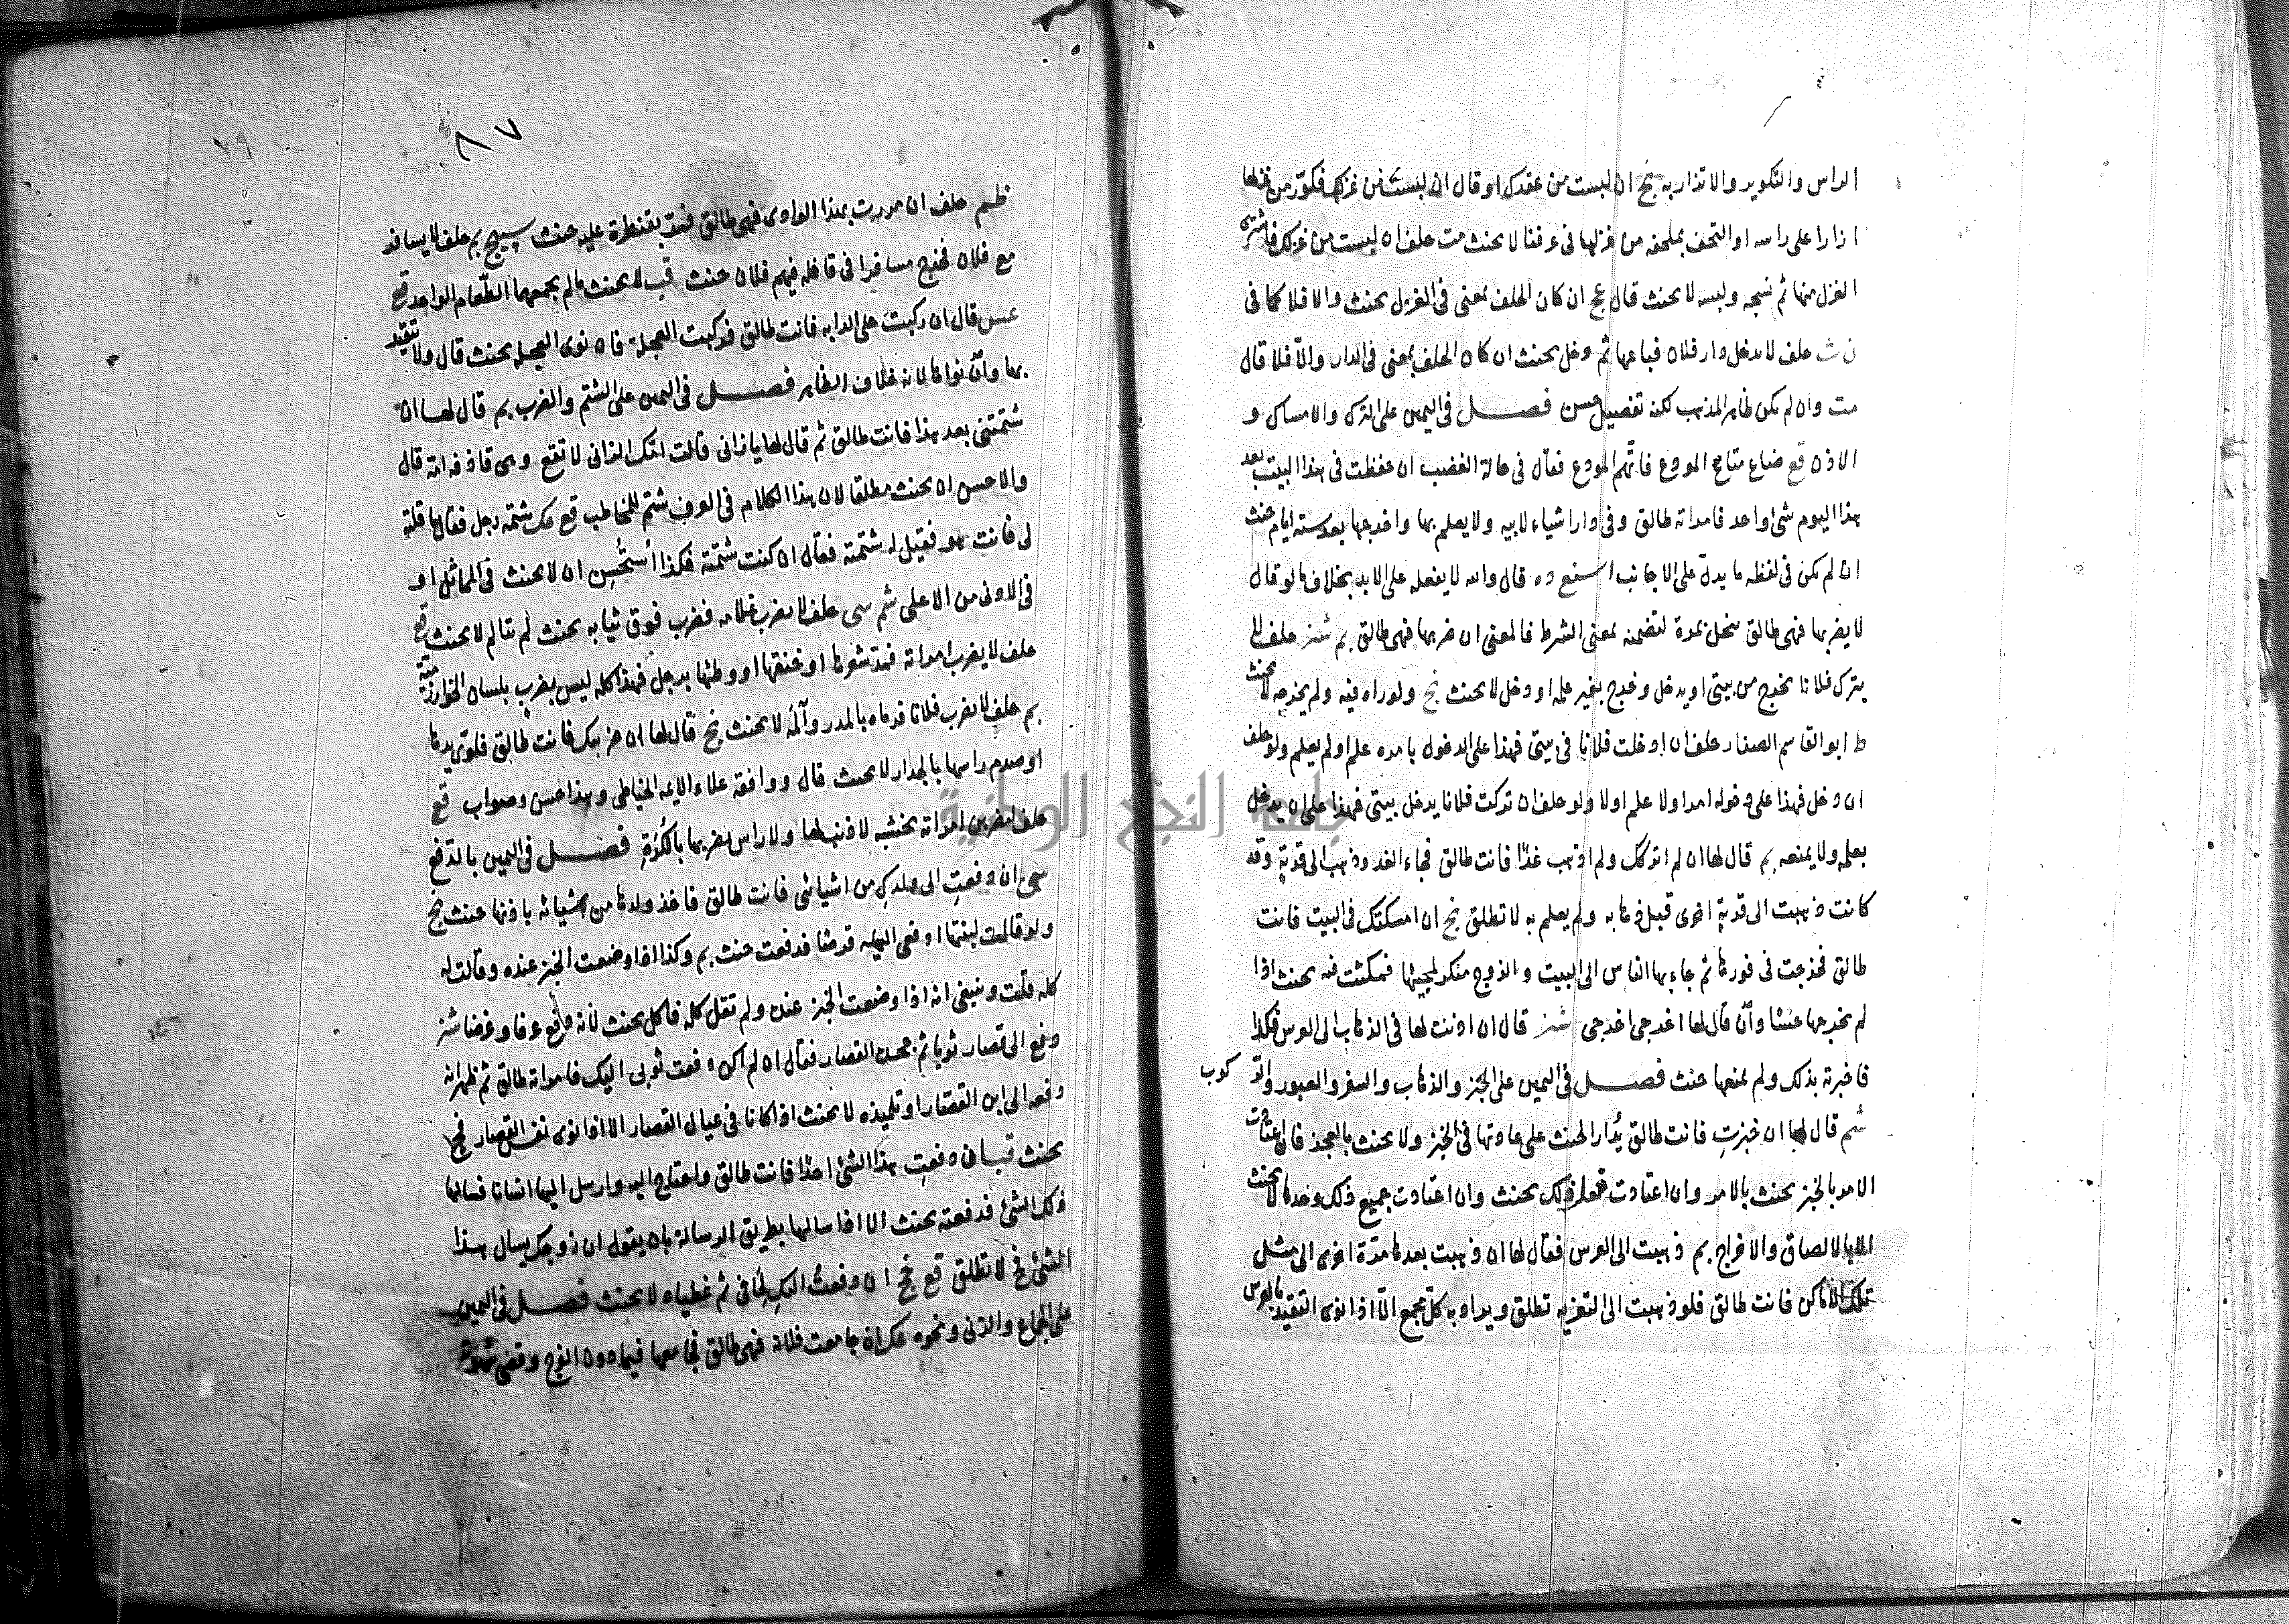 الراس والتكوير والاتذار به نج ان لبست من عقدك او قال ان لبست من غزلك فكوّر من غزلها
ازارا على راسه او التحف بملحفه من غزلها فى عرفنا لا يحنث مت حلف ان لبست من غزلك فاشترى
الغزل منها ثم نسجه ولبسه لا يحنث قال عج ان كان الحلف بمعنى فى الغزل يحنث والا فلا كما فى
حلف لا يدخل دار فلان فباعها ثم دخل يحنث ان كان الحلف بمعنى فى الدار والّا فلا قال
مت وان لم يكن ظاهر المذهب لكنه تفصيل حسن فصل فى اليمين على الترك والامساك و
الاذن قع ضاع متاع المودع فاتّهم المودع فقال فى حالة الغضب ان حفظت فى هذا البيت بعد
هذا اليوم شئ واحد فامراته طالق وفى دار اشياء لابيه ولا يعلم بها واخرجها بعد ستة ايام حنث
ان لم يكن فى لفظه ما يدلّ على الاجانب قال والله لا يفعله على الابد بخلاف ما لو قال
لا يضربها فهى طالق ينحل بمرة لتضمنه بمعنى الشرط فالمعنى ان ضربها فهى طالق بم شز حلف لا
يترك فلانا يخرج من بيتى او يدخل وخرج بغير علمه او دخل لا يحنث نج ولو راه فيه ولم يخرجه لا يحنث
ط ابو القاسم الصفار حلف ان ادخلت فلانا فى بيتى فهذا على الدخول بامره علم او لم يعلم ولو حلف
ان دخل فهذا على دخوله امر اولا علم اولا ولو حلف ان تركت فلانا يدخل بيتى فهذا على ان يدخل
بعلمه ولا يمنعه بم قال لها ان لم اتركك ولم اذهب غدًا فانت طالق فجاء الغد وذهب الى قرية وقد
كانت ذهبت الى قرية اخرى قبل ذهابه ولم يعلم به لا تطلق نج ان امسكتك فى البيت فانت
طالق فخرجت فى فورها ثم جاء بها الناس الى البيت والزوج منكر لمجيئها فمكثت فيه يحنث اذا
لم يخرجها وان قال لها اخرجى اخرجى شز قال ان اذنت لها فى الذهاب الى العرس فكذا
فاخبرته بذلك ولم يمنعها حنث فصل فى اليمين على الخبز والذهاب والسفر والعبور والر كوب
شم قال لها ان خبزتِ فانت طالق يُدار الحنث على عادتها فى الخبز ولا يحنث بالعجز فان اعتادت
الامر بالخبز يحنث بالامر وان اعتادت فعل ذلك يحنث وان اعتادت جميع ذلك وحدها لا يحنث
الا بالالصاق والاخراج بم ذهبت الى العرس فقال لها ان ذهبت بعد هامرّة اخرى الى مثل
تلك الاماكن فانت طالق فلو ذهبت الى التعزيه تطلق ويراد به كلّ مجمع الّا اذا نوى التقييد بالعرس
٨٧
٧٩
ظم حلف ان مررت بهذا الوادى فهى طالق فمر بقنطرة عليه حنث سيج بم حلف لا يسافر
مع فلان فخرج مسافرا فى قافله فيهم فلان حنث قب لا يحنث مالم يجمعهما الطّعام الواحد قع
عسن قال ان ركبت على الدابه فانت طالق فركبت العجلة فان نوى العجله يحنث قال ولا تتقيد
بها وان نواها لانه خلاف الظاهر فصل فى اليمين على الشتم والضرب بم قال لها ان
شتمتنى بعد هذا فانت طالق ثم قال لها يا زانى قالت امّك الزانى لا تقع وهى قاذفه امّه قال
والاحسن ان يحنث مطلقا لان هذا الكلام فى العرف شتم للمخاطب قع عك شتمه رجل فقال ما قلته
لى فانت هو فقيل له شتمته فقال ان كنت شتمته فكذا استُحسِن ان لا يحنث فى المماثل او
فى الادنى من الاعلى شم سى حلف لا يضرب غلامه فضرب فوق ثيابه يحنث ثم مالم لا يحنث قع
حلف لا يضرب امراته فمدّ شعرها او خنقها او وطئها برجل فهذا كله ليس بضرب بلسان الخوارزمية
بم حلف لا يضرب فلانا فرماه بالمدر وآلمه لا يحنث نج قال لها ان ضربتك فانت طالق فلوّى يدها
او صدم راسها بالجدار لا يحنث قال ووافقه علاء الايمه الخياطى وهذا حسن وصواب قع
حلف ليضربن امراته بخشبه لا ذنب لها ولا راس يضربها بالكُرَةِ فصل فى اليمين بالدفع
سى ان دفعتِ الى ولدكِ من اشيائى فانت طالق فاخذ ولدها من اشيائه باذنها حنث نج
ولو قالت لبنتها ادفعى اليه قرصًا فدفعت حنث بم وكذا اذا وضعت الخبز عنده وقالت له
كله قلت وينبغى انه اذا وضعت الخبز عنده ولم تقل كله فاكل يحنث لانه دفع عرفا وغرضا شز
دفع الى قصار ثوبا ثم جحده القصار فقال ان لم اكن دفعت ثوبى اليك فامراته طالق ثم ظهر انه
دفعه الى ابن القصّار او تلميذه لا يحنث اذا كانا فى عيال القصار الا اذا نوى نفس القصار فح
يحنث قب ان دفعتِ هذا الشئ احدًا فانت طالق واحتاج اليه وارسل اليها انسانا فسالها
ذلك الشئ فدفعته يحنث الا اذا سالها بطريق الرسالة بان يقول ان زوجك يسال هذا
الشئ فح لا تطلق قع فخ ان دفعتُ اليكِ لحافى ثم غطياه لا يحنث فصل فى اليمين
على الجماع والزنى ونحوه عك ان جامعت فلانة فهى طالق فجامعها فيما دون الفرج وقضى شهوته
جامعة النجاح الوطنية